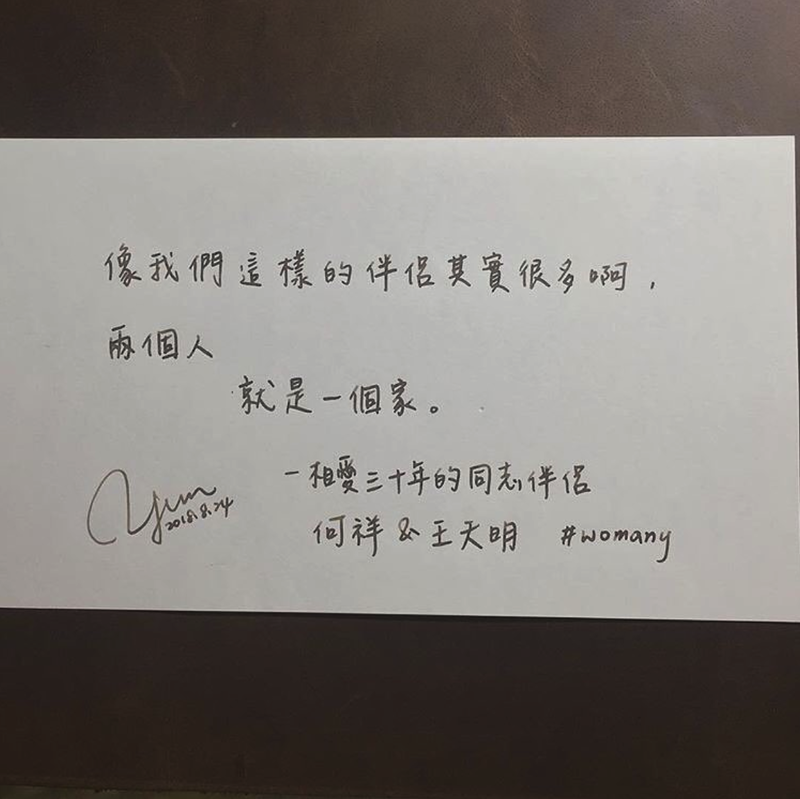 像我們這樣的伴侶其實很多啊，
兩個人
就是一個家。
－相愛三十年的同志伴侶
何祥&王天明 #womany
2018.8.24